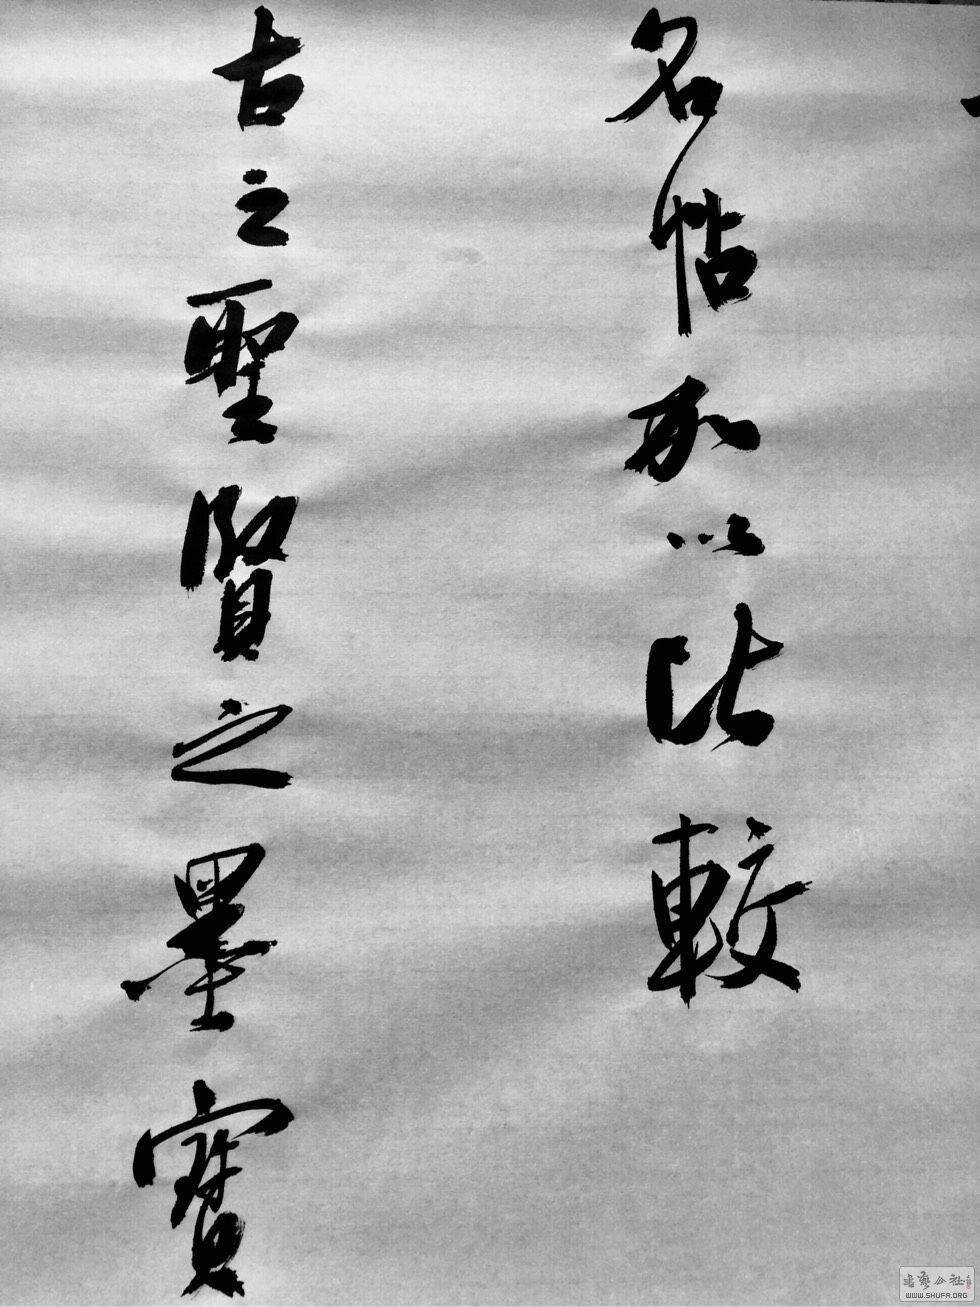 名帖加以比較
古之聖賢之墨寶
WWW.SHUFA.ORG